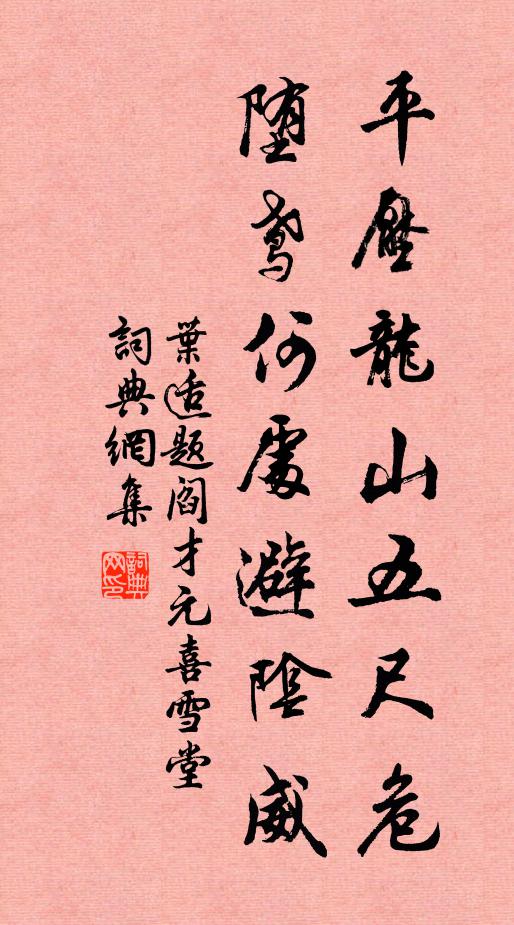 平壓龍山五尺危
堕鸢何處避陰威
葉适題閻才元喜雪堂
詞典網集
詞典网印